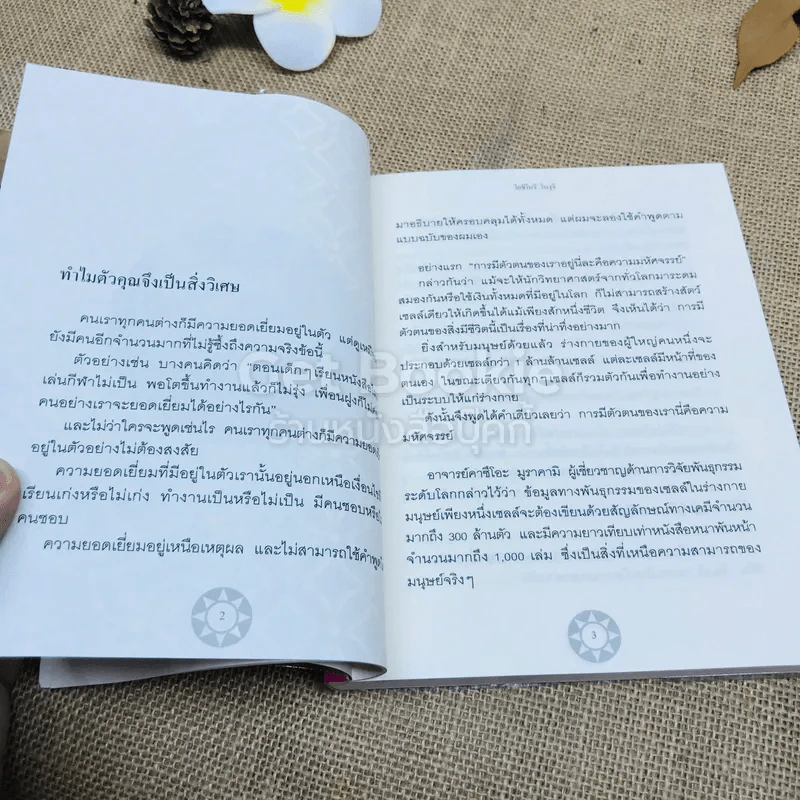 ทำไมตัวคุณจึงเป็นสิ่งวิเศษ
คนเราทุกคนต่างก็มีความยอดเยี่ยมอยู่ในตัว แต่ดูเหมือน
ยังมีคนอีกจำนวนมากที่ไม่รู้ซึ้งถึงความจริงข้อนี้
ตัวอย่างเช่น บางคนคิดว่า "ตอนเด็กๆ เรียนหนังสือ
เล่นกีฬาไม่เป็น พอโตขึ้นทำงานแล้วก็ไม่รุ่ง เพื่อนฝูงก็ไม่
คนอย่างเราจะยอดเยี่ยมได้อย่างไรกัน"
และไม่ว่าใครจะพูดเช่นไร คนเราทุกคนต่างก็มีความยอด
อยู่ในตัวอย่างไม่ต้องสงสัย
ความยอดเยี่ยมที่มีอยู่ในตัวเรานั้นอยู่นอกเหนือเงื่อนไข
เรียนเก่งหรือไม่เก่ง ทำงานเป็นหรือไม่เป็น มีคนชอบหรือ
คนชอบ
ความยอดเยี่ยมอยู่เหนือเหตุผล และไม่สามารถใช้คำพูด
2
มาอธิบายให้ครอบคลุมได้ทั้งหมด แต่ผมจะลองใช้คำพูดตาม
แบบฉบับของผมเอง
อย่างแรก "การมีตัวตนของเราอยู่นี่ละคือความมหัศจรรย์"
กล่าวกันว่า แม้จะให้นักวิทยาศาสตร์จากทั่วโลกมาระดม
สมองกันหรือใช้เงินทั้งหมดที่มีอยู่ในโลก ก็ไม่สามารถสร้างสัตว์
เซลล์เดียวให้เกิดขึ้นได้แม้เพียงสักหนึ่งชีวิต จึงเห็นได้ว่า การมี
ตัวตนของสิ่งมีชีวิตนี้เป็นเรื่องที่น่าทึ่งอย่างมาก
ยิ่งสำหรับมนุษย์ด้วยแล้ว ร่างกายของผู้ใหญ่คนหนึ่งจะ
ประกอบด้วยเซลล์กว่า ล้านล้านเซลล์ แต่ละเซลล์มีหน้าที่ของ
ตนเอง ในขณะเดียวกันทุกๆ เซลล์ก็รวมตัวกันเพื่อทำงานอย่าง
เป็นระบบให้แก่ร่างกาย
ดังนั้นจึงพูดได้คำเดียวเลยว่า การมีตัวตนของเรานี่คือความ
มหัศจรรย์
อาจารย์คาซึโอะ มูราคามิ ผู้เชี่ยวชาญด้านการวิจัยพันธุกรรม
ระดับโลกกล่าวไว้ว่า ข้อมูลทางพันธุกรรมของเซลล์ในร่างกาย
มนุษย์เพียงหนึ่งเซลล์จะต้องเขียนด้วยสัญลักษณ์ทางเคมีจำนวน
มากถึง 300 ล้านตัว และมีความยาวเทียบเท่าหนังสือหนาพันหน้า
จำนวนมากถึง 1,000 เล่ม ซึ่งเป็นสิ่งที่เหนือความสามารถของ
มนุษย์จริงๆ
3
Get Bookie
ร้านหนังสือบุ๊คกี้